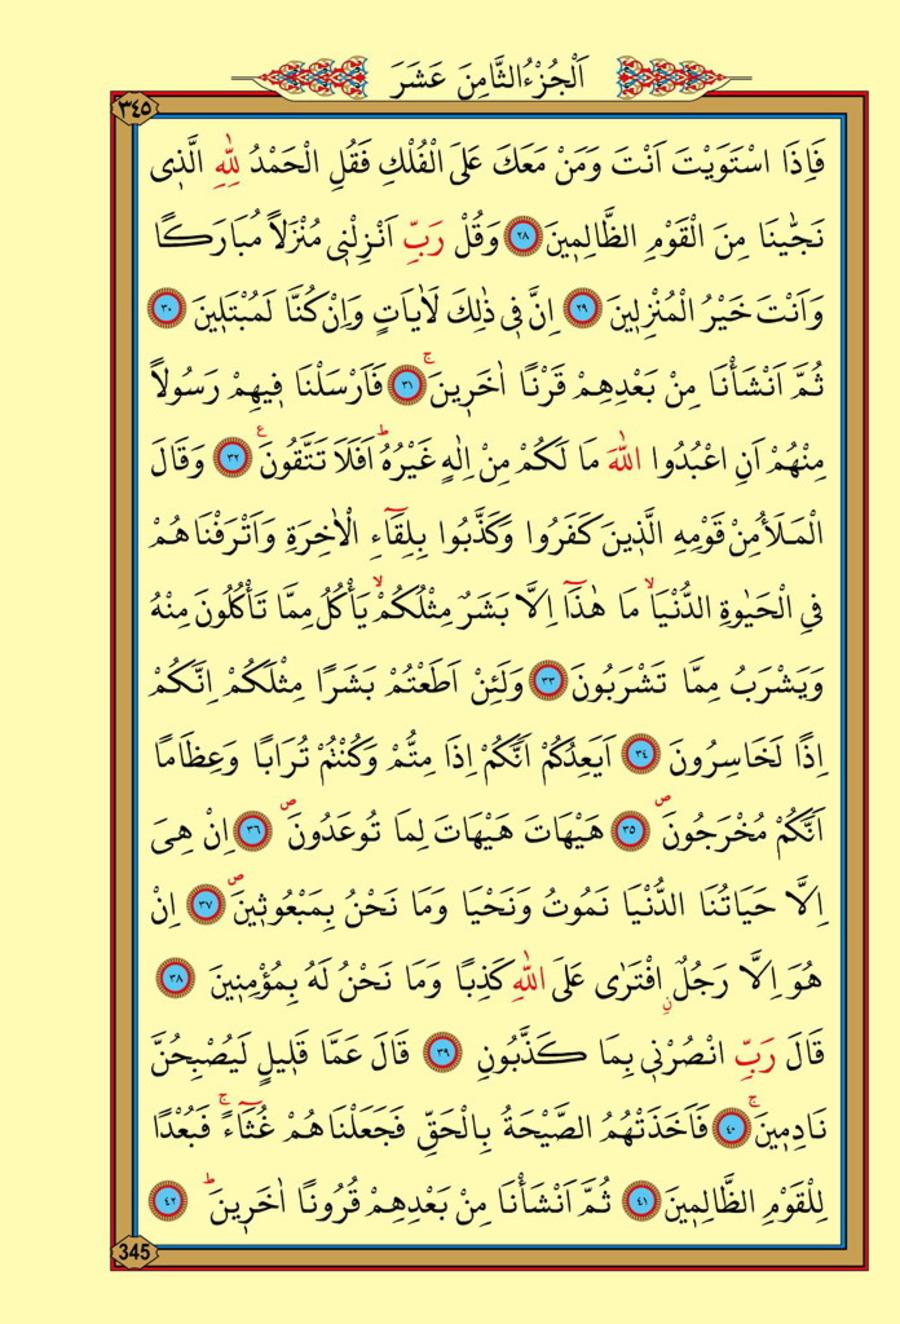 اَلْجُزْءُ الثَّامِنَ عَشَرَ
٣٤٥
فَاِذَا اسْتَوَيْتَ اَنْتَ وَمَنْ مَعَكَ عَلَى الْفُلْكِ فَقُلِ الْحَمْدُ لِلّٰهِ الَّذ۪ى
نَجّٰينَا مِنَ الْقَوْمِ الظَّالِم۪ينَ ٢٨ وَقُلْ رَبِّ اَنْزِلْن۪ى مُنْزَلاً مُبَارَكًا
وَاَنْتَ خَيْرُ الْمُنْزِل۪ينَ ٢٩ اِنَّ ف۪ى ذٰلِكَ لَاٰيَاتٍ وَاِنْ كُنَّا لَمُبْتَل۪ينَ ٣٠
ثُمَّ اَنْشَأْنَا مِنْ بَعْدِهِمْ قَرْنًا اٰخَر۪ينَۚ ٣١ فَاَرْسَلْنَا ف۪يهِمْ رَسُولاً
مِنْهُمْ اَنِ اعْبُدُوا اللّٰهَ مَا لَكُمْ مِنْ اِلٰهٍ غَيْرُهُۜ اَفَلَا تَتَّقُونَ ع ٣٢ وَقَالَ
الْمَلَأُ مِنْ قَوْمِهِ الَّذ۪ينَ كَفَرُوا وَكَذَّبُوا بِلِقَٓاءِ الْاٰخِرَةِ وَاَتْرَفْنَاهُمْ
فِي الْحَيٰوةِ الدُّنْيَاۙ مَا هٰذَٓا اِلَّا بَشَرٌ مِثْلُكُمْۙ يَأْكُلُ مِمَّا تَأْكُلُونَ مِنْهُ
وَيَشْرَبُ مِمَّا تَشْرَبُونَ ٣٣ وَلَئِنْ اَطَعْتُمْ بَشَرًا مِثْلَكُمْ اِنَّكُمْ
اِذًا لَخَاسِرُونَ ٣٤ اَيَعِدُكُمْ اَنَّكُمْ اِذَا مِتُّمْ وَكُنْتُمْ تُرَابًا وَعِظَامًا
اَنَّكُمْ مُخْرَجُونَۖ ٣٥ هَيْهَاتَ هَيْهَاتَ لِمَا تُوعَدُونَۖ ٣٦ اِنْ هِىَ
اِلَّا حَيَاتُنَا الدُّنْيَا نَمُوتُ وَنَحْيَا وَمَا نَحْنُ بِمَبْعُوث۪ينَۖ ٣٧ اِنْ
هُوَ اِلَّا رَجُلٌ ن۪ افْتَرٰى عَلَى اللّٰهِ كَذِبًا وَمَا نَحْنُ لَهُ بِمُؤْمِن۪ينَ ٣٨
قَالَ رَبِّ انْصُرْن۪ى بِمَا كَذَّبُونِ ٣٩ قَالَ عَمَّا قَل۪يلٍ لَيُصْبِحُنَّ
نَادِم۪ينَۚ ٤٠ فَاَخَذَتْهُمُ الصَّيْحَةُ بِالْحَقِّ فَجَعَلْنَاهُمْ غُثَٓاءًۚ فَبُعْدًا
لِلْقَوْمِ الظَّالِم۪ينَ ٤١ ثُمَّ اَنْشَأْنَا مِنْ بَعْدِهِمْ قُرُونًا اٰخَر۪ينَۜ ٤٢
345